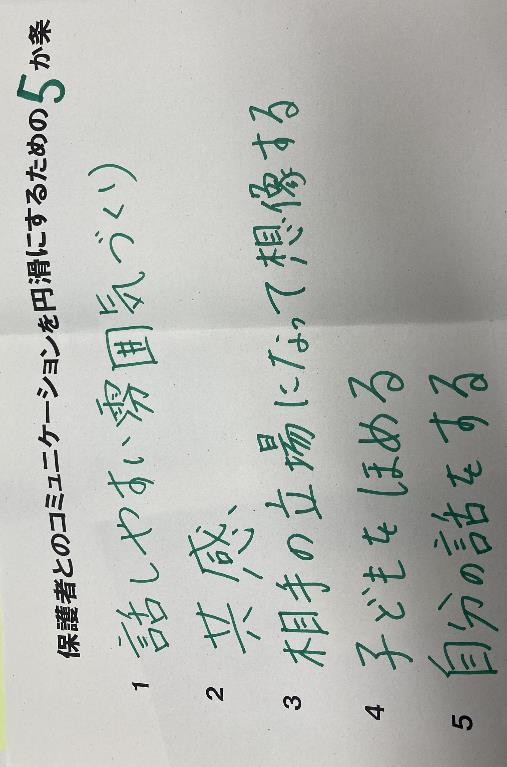 保護者とのコミュニケーションを円滑にするための5か条
1 話しやすい雰囲気づくり
2 共感
3 相手の立場になって想像する
4 子どもをほめる
5 自分の話をする